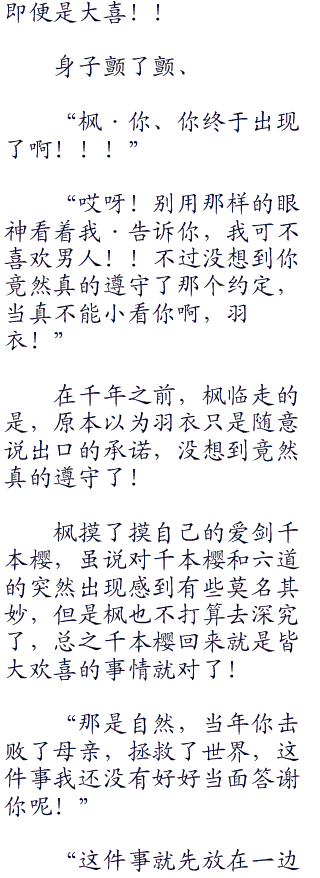 即便是大喜！！
身子颤了颤、
“枫·你、你终于出现
了啊！！！”
“哎呀！别用那样的眼
神看着我·告诉你，我可不
喜欢男人！！不过没想到你
竟然真的遵守了那个约定，
当真不能小看你啊，羽
衣！”
在千年之前，枫临走的
是，原本以为羽衣只是随意
说出口的承诺，没想到竟然
真的遵守了！
枫摸了摸自己的爱剑千
本樱，虽说对千本樱和六道
的突然出现感到有些莫名其
妙，但是枫也不打算去深究
了，总之千本樱回来就是皆
大欢喜的事情就对了！
“那是自然，当年你击
败了母亲，拯救了世界，这
件事我还没有好好当面答谢
你呢！”
“这件事就先放在一边